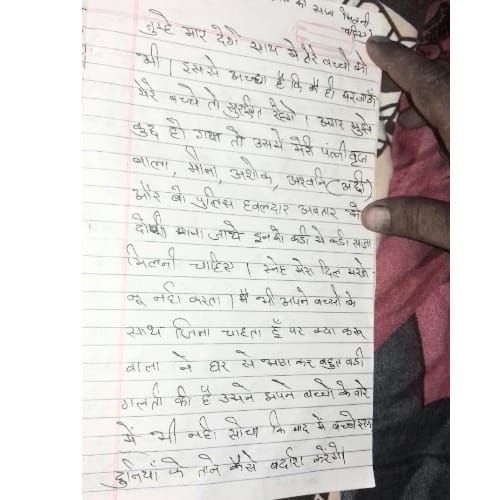 को सजा मिलनी
चाहिए
तुम्हे मार देगे साथ मे तेरे बच्चो को
भी । इससे अच्छा है कि मै ही मर जाऊँ
मेरे बच्चे तो सुरक्षित रहेगे । अगर मुझे
कुछ हो गया तो उसमे मेरी पत्नी वृज
बाला, मोना, अशोक, अश्वनि (अदी)
और वो पुलिस हवलदार अवतार को
दोषी माना जाये इनको कडी से कडी सजा
मिलनी चाहिए । स्नेह मेरा दिल मरने
कू नही करता । मै भी अपने बच्चो के
साथ जिना चाहता हूँ पर क्या करू
बाला ने घर से भाग कर बहुत बडी
गलती की है उसने अपने बच्चो के बारे
में भी नही सोचा कि बाद में बच्चे इस
दुनियाँ के ताने कैसे बर्दाश करेंगे।